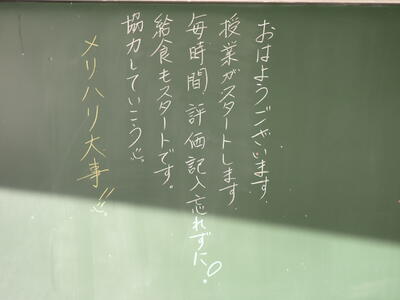 おはようございます
授業がスタートします
毎時間 評価記入忘れずに!
給食もスタートです。
協力していこう
メリハリ大事!!